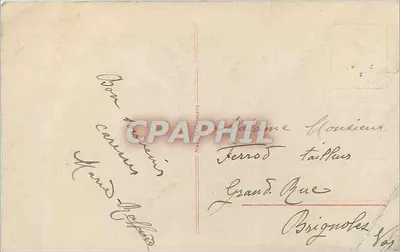 Bon souvenir
caresses
Marie
CPAPHIL
Madame Monsieur
Ferrod tailleur
Grand Rue
Brignoles
Var